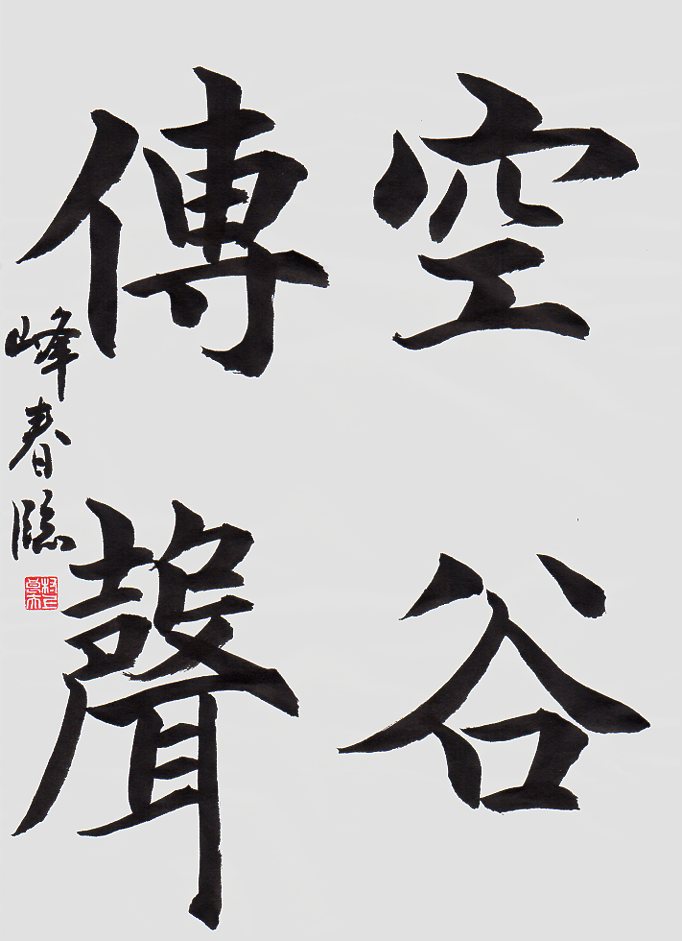 空谷
傳聲
峰春臨